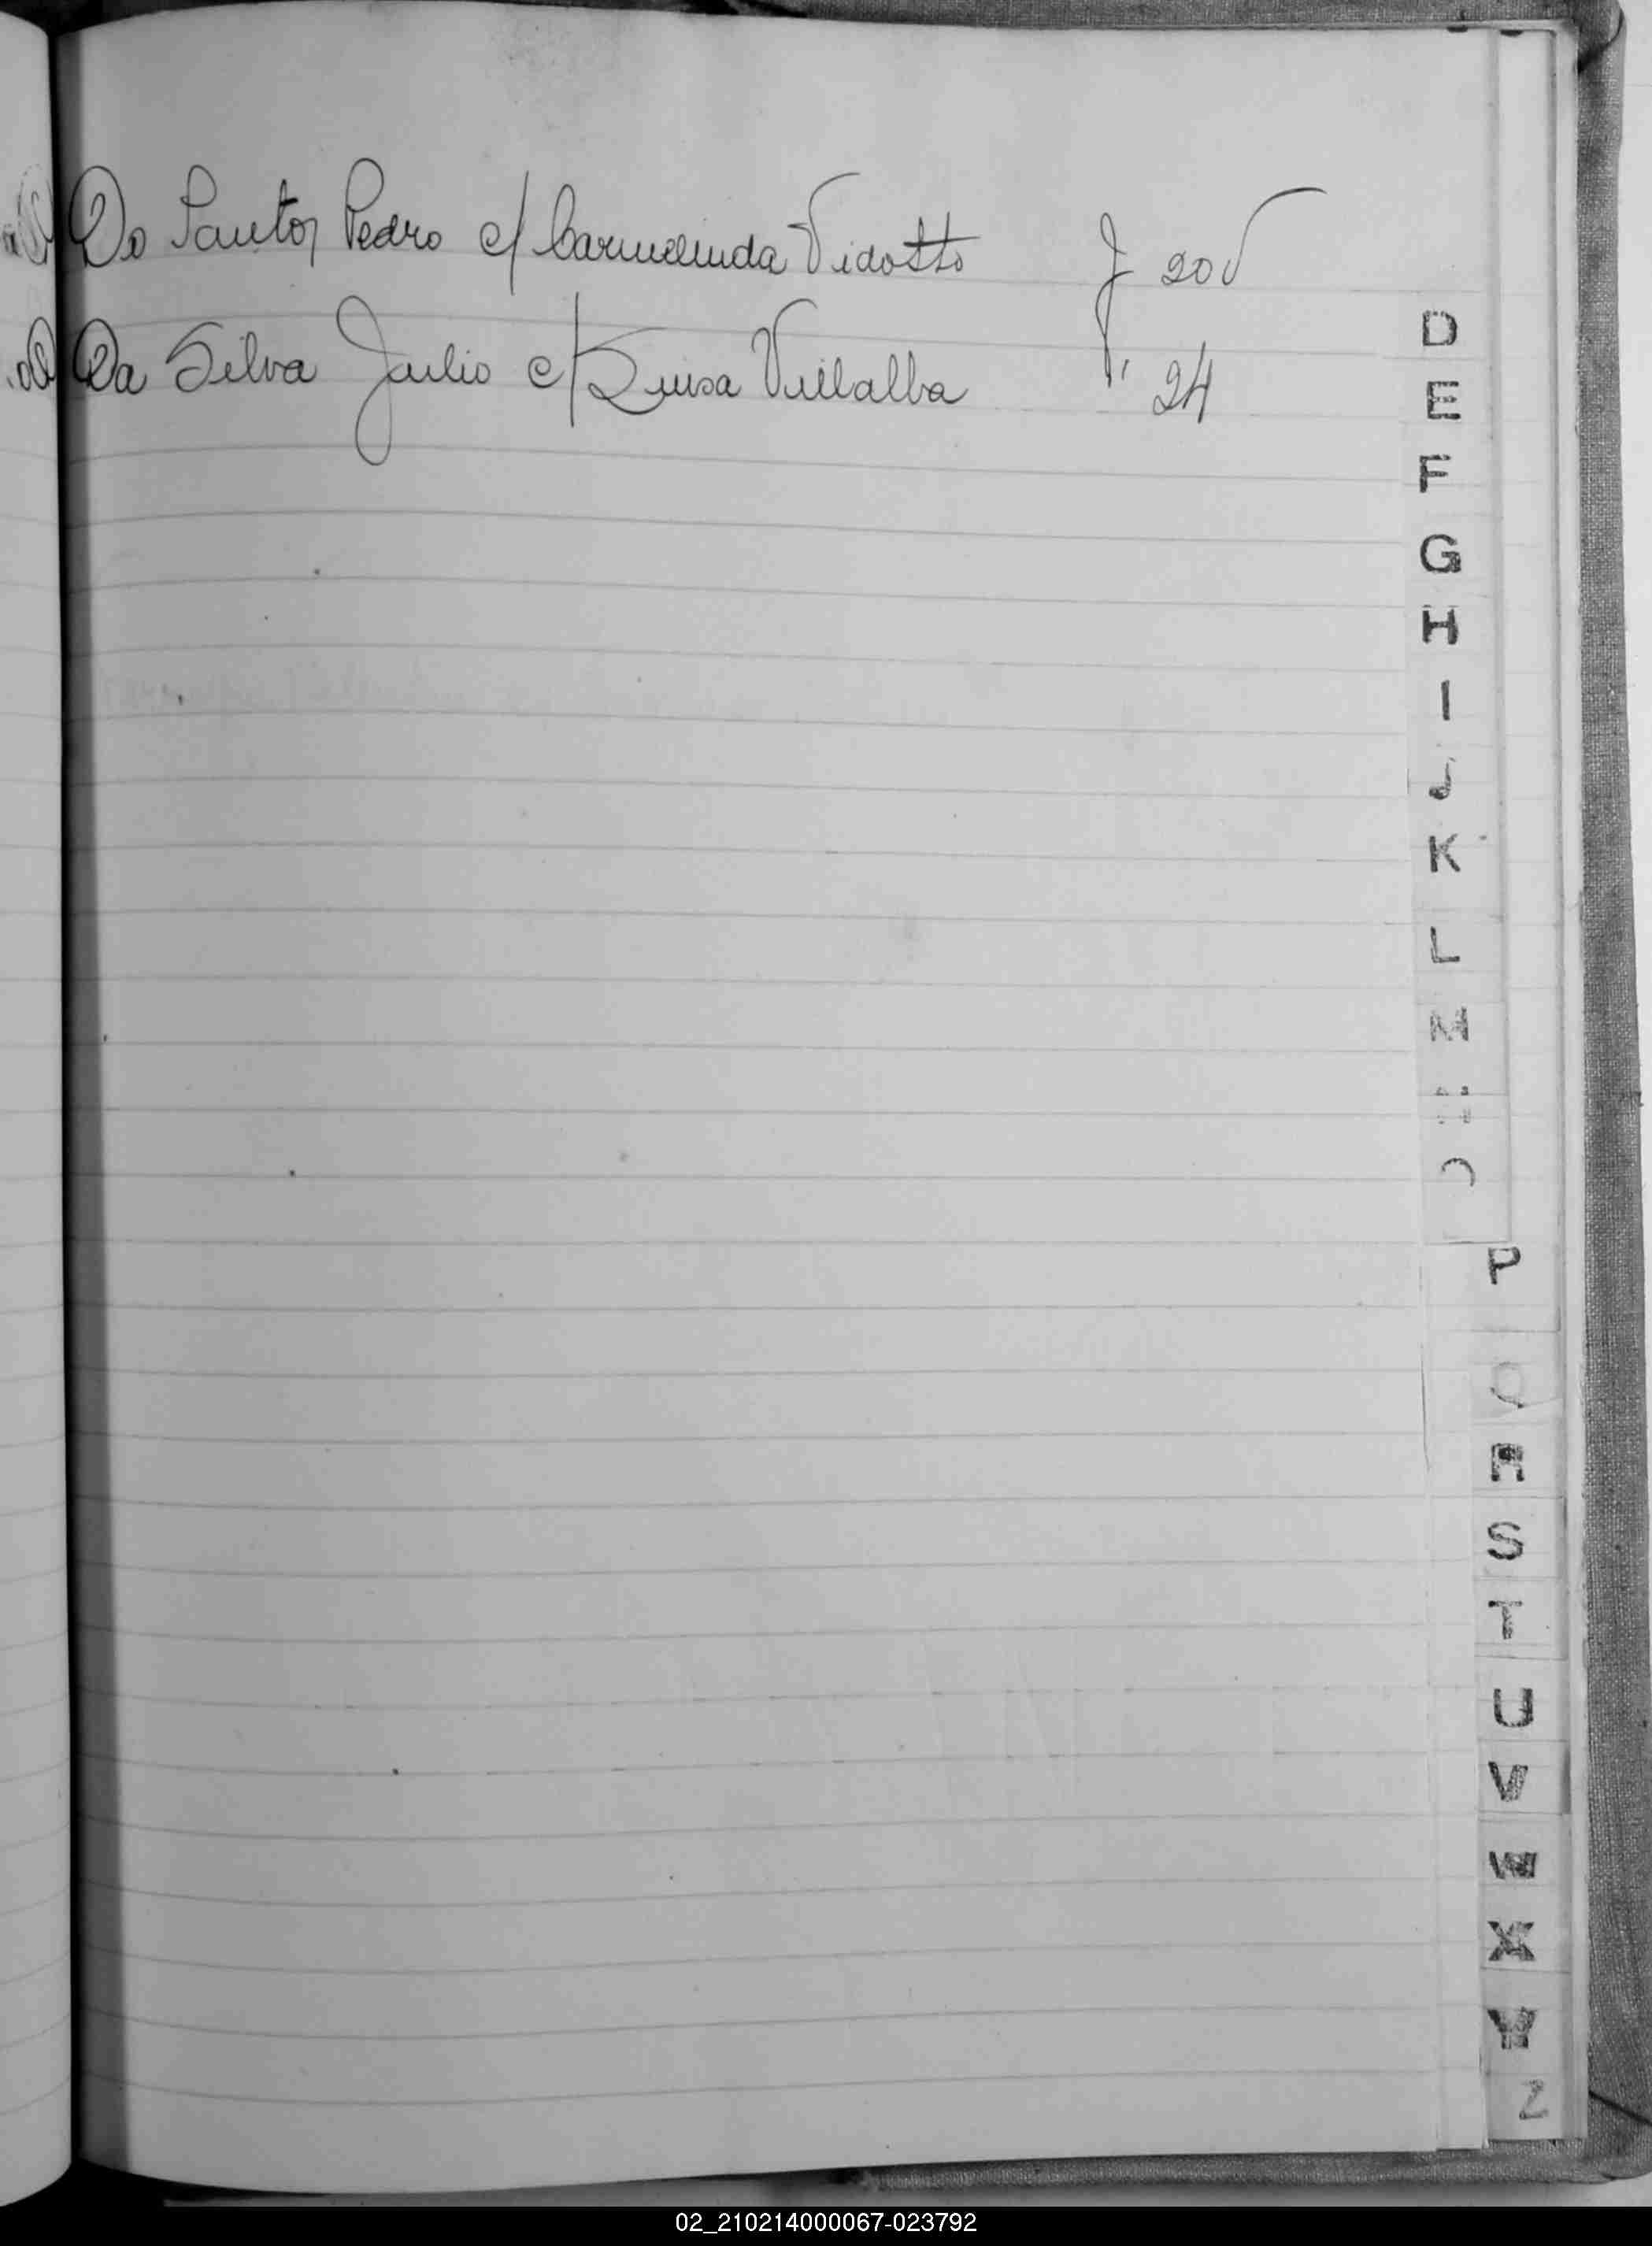 Do Santos Pedro c/ Carmelinda Vidotto F 20v
Da Silva Julio c/ Luisa Villalba " 24
D
E
F
G
H
I
J
K
L
M
N
O
P
Q
R
S
T
U
V
W
X
Y
Z
02_210214000067-023792